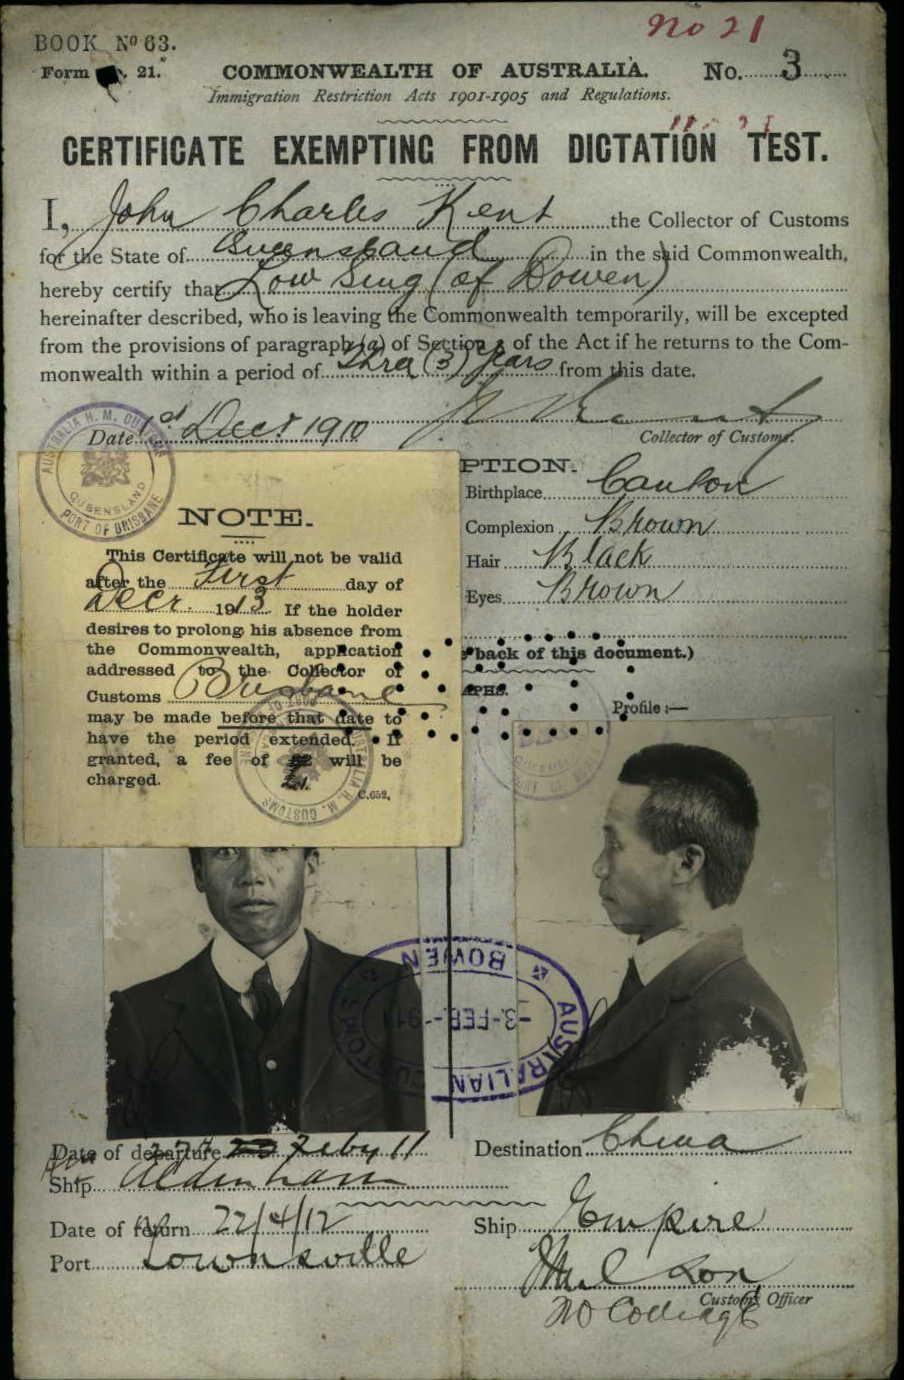 No 21
BOOK Nº 63.
Form 21.
COMMONWEALTH OF AUSTRALIA.
No. 3
Immigration Restriction Acts 1901-1905 and Regulations.
CERTIFICATE EXEMPTING FROM DICTATION TEST.
I, John Charles Kent the Collector of Customs
for the State of Queensland in the said Commonwealth,
hereby certify that Low Sing (of Bowen)
hereinafter described, who is leaving the Commonwealth temporarily, will be excepted
from the provisions of paragraph (a) of Section 3 of the Act if he returns to the Com-
monwealth within a period of Three (3) years from this date.
Date 1st Decr 1910
Collector of Customs.
AUSTRALIA H. M. CUSTOMS
QUEENSLAND
PORT OF BRISBANE
NOTE.
This Certificate will not be valid
after the First day of
Decr. 1913. If the holder
desires to prolong his absence from
the Commonwealth, application
addressed to the Collector of
Customs Brisbane
may be made before that date to
have the period extended. If
granted, a fee of will be
charged.
C.652.
PTION.
Birthplace Canton
Complexion Brown
Hair Black
Eyes Brown
back of this document.)
APHS.
Profile:—
BOWEN
3-FEB.-911
AUSTRALIAN CUSTOMS
Date of departure Feby 11
Destination China
Ship Aldenham
Date of return 22/4/12
Ship Empire
Port Townsville
Customs Officer